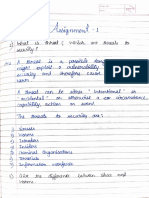 Assignment - 1
1) What is threat; which are threats to
security?
Ans A threat is a possible danger that
might exploit a vulnerability to breach
security and therefore cause possible
harm.
A threat can be either "intentional" or
"accidental" or otherwise a circumstance,
capability, action or event.
The threats to security are:
1) Viruses
2) Worms
3) Intruders
4) Insiders
5) Criminal Organizations
6) Terrorists
7) Information warfare
2) Give the difference between virus and
worms